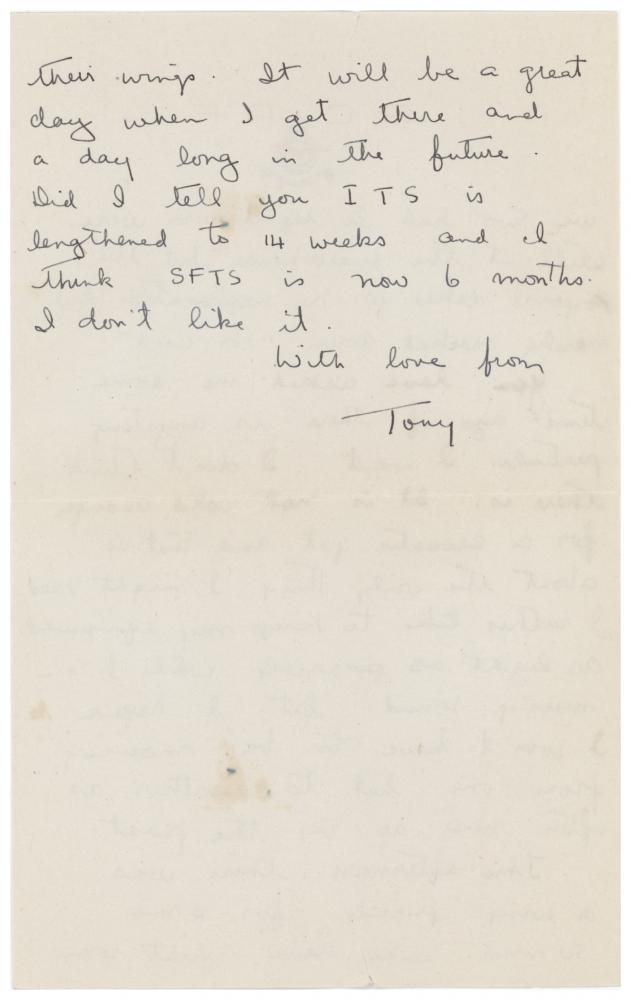 their wings. It will be a great
day when I get there and
a day long in the future.
Did I tell you I T S is
lengthened to 14 weeks and I
think SFTS is now 6 months.
I don't like it.
With love from
Tony